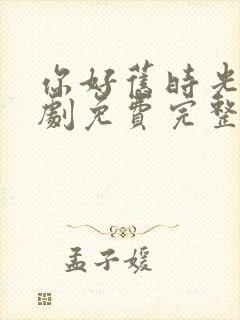 你好舊時光
劇免費完整
孟子媛